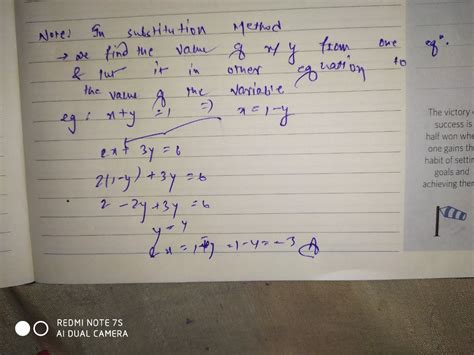 Note: In substitution Method
→ we find the value of x/y from one eqⁿ.
& put it in other equation to
the value of the variable
eg: x+y=1 ⇒ x=1-y
2x+3y=6
2(1-y)+3y=6
2-2y+3y=6
y=4
x=1-y=1-4=-3
The victory
success is
half won whe
one gains th
habit of settin
goals and
achieving them
REDMI NOTE 7S
AI DUAL CAMERA